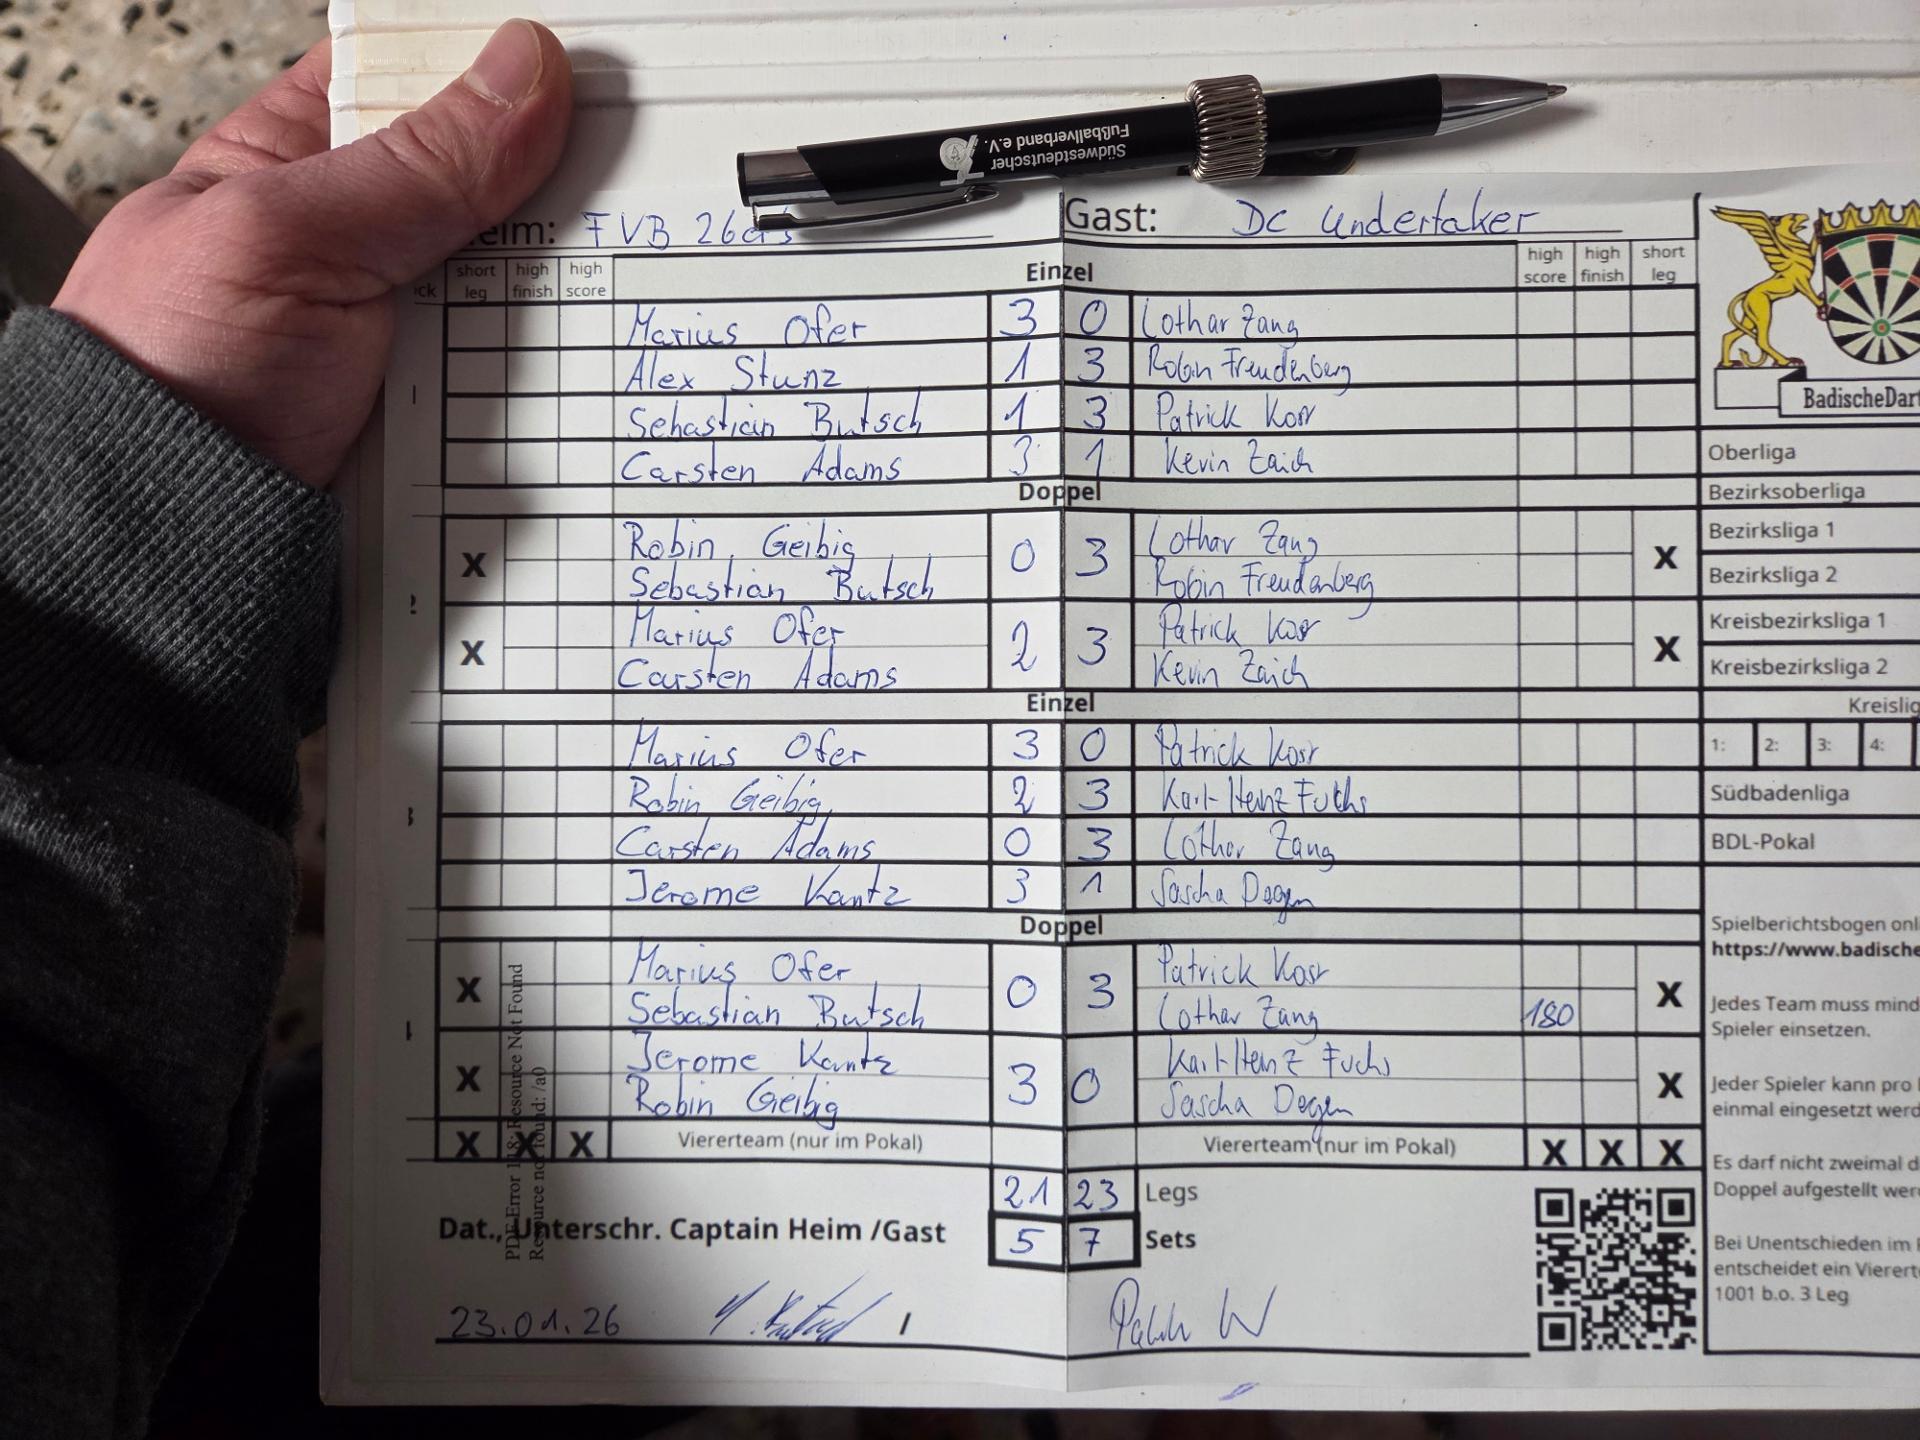 Südwestdeutscher
Fußballverband e.V.
eim: FVB 26er's
Gast: DC Undertaker
ck short leg high finish high score Einzel high score high finish short leg
1
Marius Ofer 3 0 Lothar Zang
Alex Stunz 1 3 Robin Freudenberg
Sebastian Butsch 1 3 Patrick Kosr
Carsten Adams 3 1 Kevin Zaich
Doppel
2
X Robin Geibig 0 3 Lothar Zang X
Sebastian Butsch Robin Freudenberg
X Marius Ofer 2 3 Patrick Kosr X
Carsten Adams Kevin Zaich
Einzel
3
Marius Ofer 3 0 Patrick Kosr
Robin Geibig 2 3 Karl-Heinz Fuchs
Carsten Adams 0 3 Lothar Zang
Jerome Kantz 3 1 Sascha Degen
Doppel
X Marius Ofer 0 3 Patrick Kosr X
Sebastian Butsch Lothar Zang 180
X Jerome Kantz 3 0 Karl-Heinz Fuchs X
Robin Geibig Sascha Degen
X X X Viererteam (nur im Pokal) Viererteam (nur im Pokal) X X X
21 23 Legs
Dat., Unterschr. Captain Heim /Gast 5 7 Sets
23.01.26 /
PDF Error 118: Resource Not Found
Resource not found: /a0
BadischeDart
Oberliga
Bezirksoberliga
Bezirksliga 1
Bezirksliga 2
Kreisbezirksliga 1
Kreisbezirksliga 2
Kreislig
1: 2: 3: 4:
Südbadenliga
BDL-Pokal
Spielberichtsbogen onl
https://www.badische
Jedes Team muss mind
Spieler einsetzen.
Jeder Spieler kann pro
einmal eingesetzt werd
Es darf nicht zweimal d
Doppel aufgestellt wer
Bei Unentschieden im
entscheidet ein Vierert
1001 b.o. 3 Leg